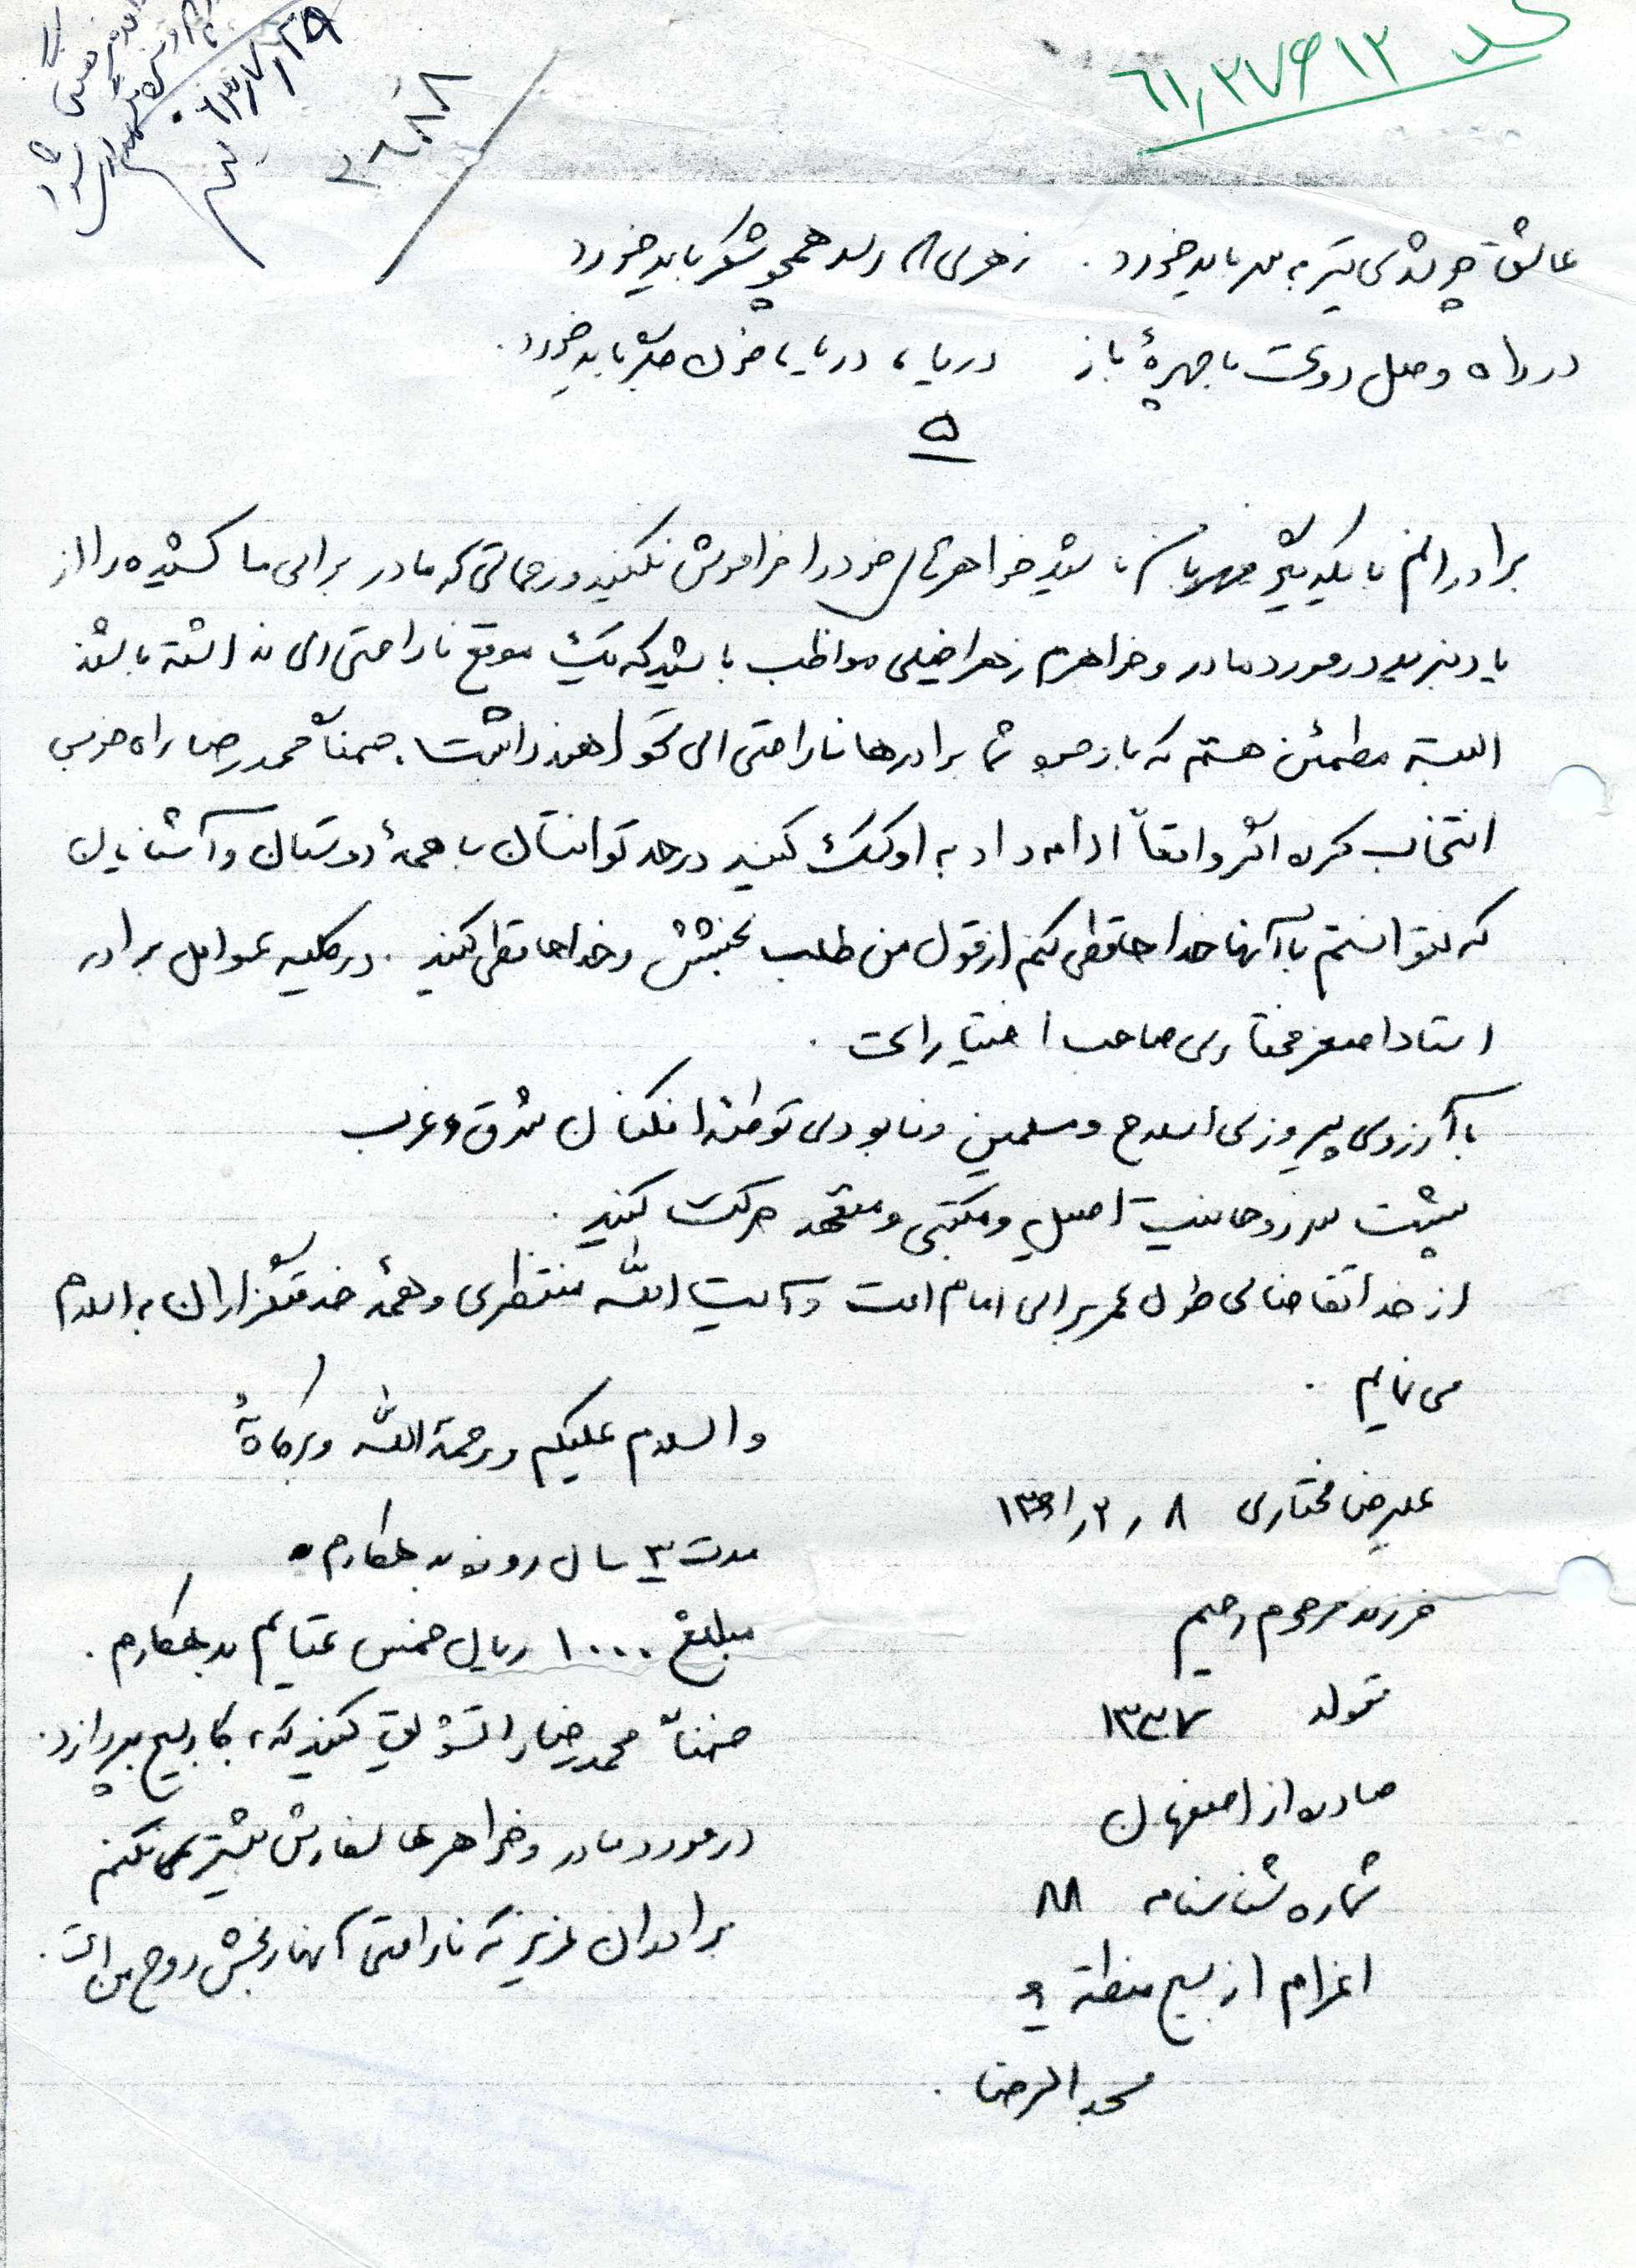 کد ۶۱٫۲۷۶۹۱۲
۲۶۰۸۸
۶۳/۷/۲۵
عاشق چو شدی تیر به سر باید خورد . زهری کز رسد همچو شکر باید خورد
در راه وصل دوست با چهرهٔ باز دریا، دریا، خون جگر باید خورد .
۵
برادرانم با یکدیگر مهربان باشید خواهرتان خود را فراموش نکنید و زحماتی که مادر برای ما کشیده را از
یاد نبرید در مورد مادر و خواهرم زهرا خیلی مواظب باشید که یک موقع ناراحتی ای نداشته باشند
البته مطمئن هستم که با وجود شما برادرها ناراحتی ای نخواهند داشت . ضمناً محمدرضا راه خوبی
انتخاب کرده اگر واقعاً ادامه داد به او کمک کنید در حد توانتان با همهٔ دوستان و آشنایان
که نتوانستم با آنها خداحافظی کنم از قول من طلب بخشش و خداحافظی کنید . در کلیه عوامل برادر
استاد اصغر مختاری صاحب اختیار است .
با آرزوی پیروزی اسلام و مسلمین و نابودی توطئه افکنان شرق و غرب
پشت سر روحانیت اصیل و مکتبی و متعهد حرکت کنید .
از خدا تقاضای طول عمر برای امام امت و آیت الله منتظری و همهٔ خدمتگزاران به اسلام
می نمایم .
والسلام علیکم و رحمة الله و برکاتهٔ
علیرضا مختاری ۸ ر ۲ ر ۱۳۶۱
مدت ۳ سال روزه بدهکارم .
فرزند مرحوم رحیم
مبلغ ۱۰۰۰ ریال خمس عتایم بدهکارم .
تولد ۱۳۳۷
ضمناً محمدرضا را تشویق کنید که، بکار بسیج بپردازد .
صادره از اصفهان
در مورد مادر و خواهرها سفارش بیشتر نمی کنم
شماره شناسنامه ۸۸
برادران عزیز که ناراحتی آنها رنجش روح من است .
اعزام از بسیج منطقه ۶
مسجد الرضا .